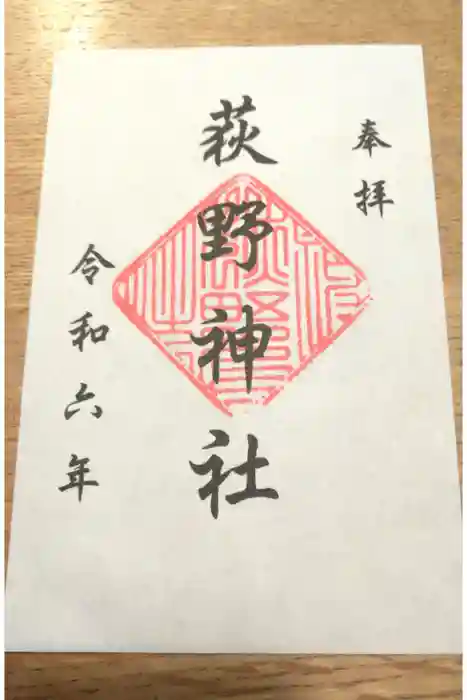 奉拝
萩野神社
令和六年